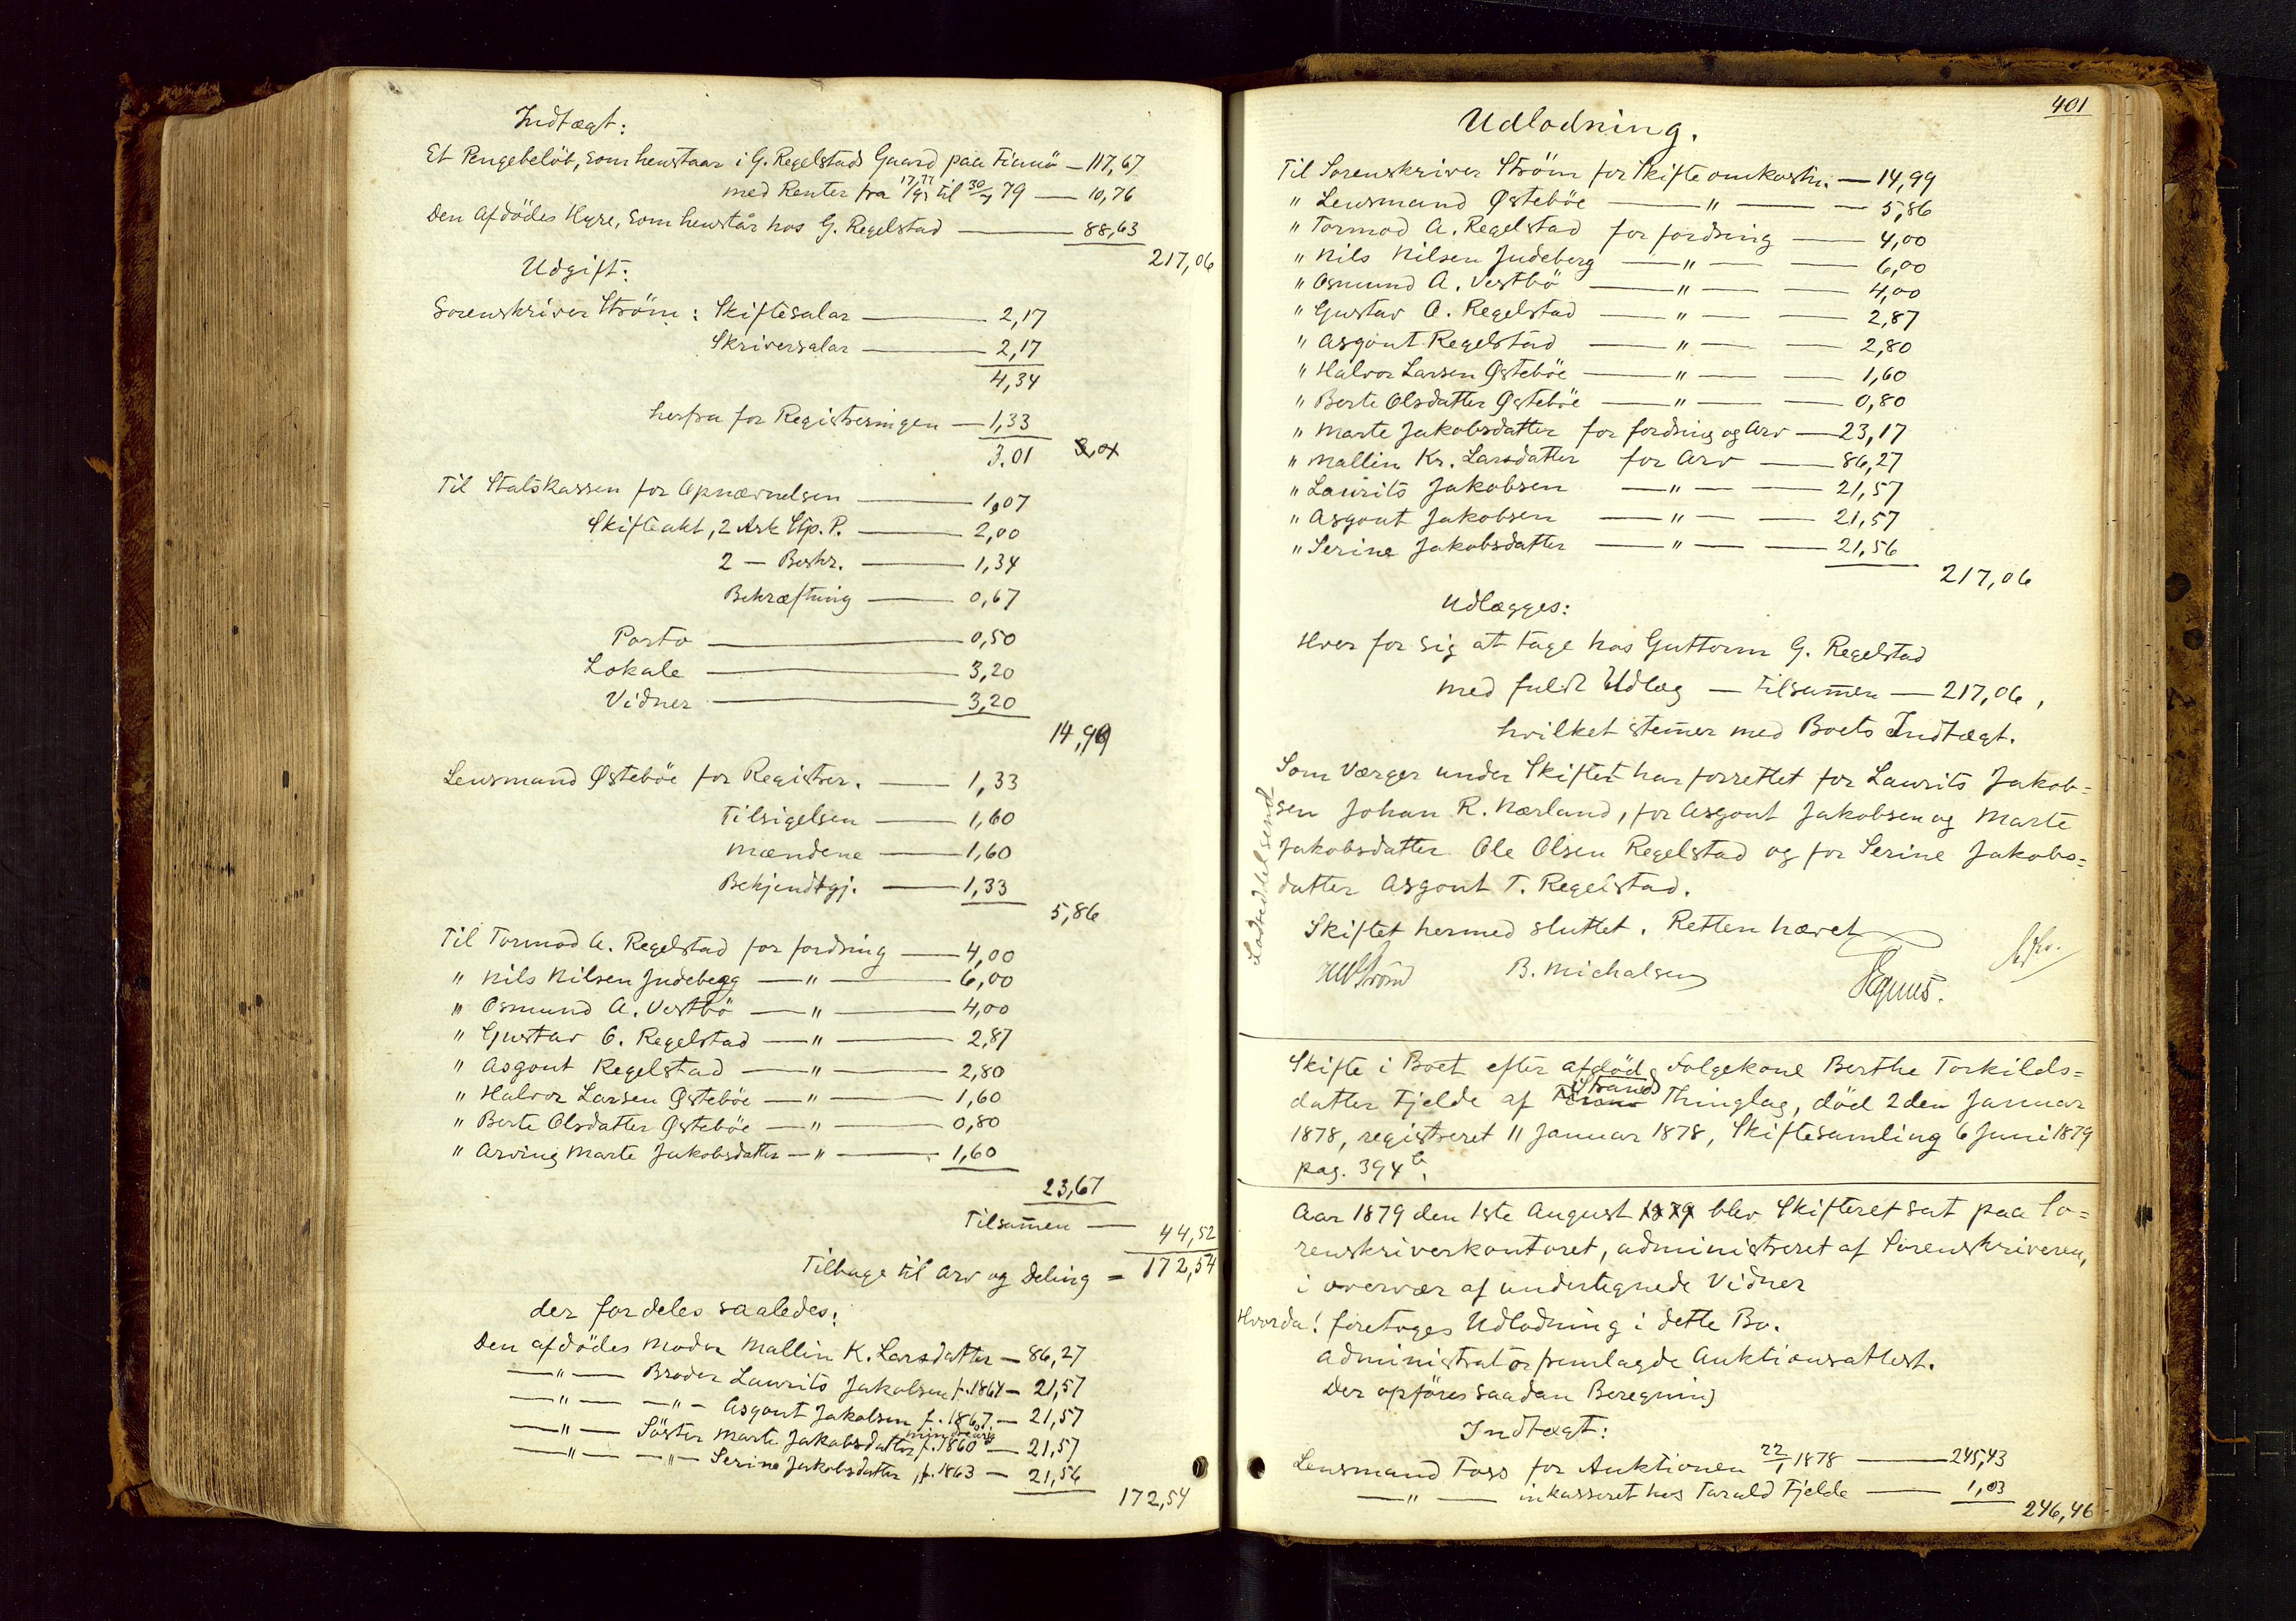 Indtægt:
Et Pengebelöb, som henstaar i G. Regelstads Gaard paa Finnö — 117,67
med Renter fra 17/9 77 til 30/7 79 — 10,76
Den Afdödes Hyre, som henstår hos G. Regelstad — 88,63
217,06
Udgift:
Sorenskriver Ström: Skiftesalar — 2,17
Skriversalar — 2,17
4,34
herfra for Registreringen — 1,33
3.01
Til Statskassen for Opnævnelsen — 1,07
Skifteakt, 2 Ark Stp. P. — 2,00
2 — Beskr. — 1,34
Bekræftning — 0,67
Porto — 0,50
Lokale — 3,20
Vidner — 3,20
14,99
Lensmand Østeböe for Registrer. — 1,33
Tilsigelsen — 1,60
Mændene — 1,60
Bekjendtgj. — 1,33
5,86
Til Tormod A. Regelstad for fordring — 4,00
" Nils Nilsen Judeberg — " — 6,00
" Osmund A. Vestbö — " — 4,00
" Gustav G. Regelstad — " — 2,87
" Asgout Regelstad — " — 2,80
" Halvor Larsen Østeböe — " — 1,60
" Berte Olsdatter Østeböe — " — 0,80
" Arving Marte Jakobsdatter — " — 1,60
23,67
Tilsamen — 44,52
Tilbage til Arv og Deling = 172,54
der fordeles saaledes:
Den afdödes Moder Mallin K. Larsdatter — 86,27
— " — Broder Laurits Jakobsen f. 1864 — 21,57
— " — — " — Asgout Jakobsen f. 1867 — 21,57
— " — Söster Marte Jakobsdatter mindreårig f. 1860 — 21,57
— " — — " — Serine Jakobsdatter, f. 1863 — 21,56
172,54
401
Udlodning.
Til Sorenskriver Ström for Skifteomkostn. — 14,99
" Lensmand Østeböe — " — 5,86
" Tormod A. Regelstad for fordring — 4,00
" Nils Nilsen Judeberg — " — 6,00
" Osmund A. Vestbö — " — 4,00
" Gustav A. Regelstad — " — 2,87
" Asgout Regelstad — " — 2,80
" Halvor Larsen Østeböe — " — 1,60
" Berte Olsdatter Østeböe — " — 0,80
" Marte Jakobsdatter for fordring og Arv — 23,17
" Mallin Kr. Larsdatter for Arv — 86,27
" Laurits Jakobsen — " — 21,57
" Asgout Jakobsen — " — 21,57
" Serine Jakobsdatter — " — 21,56
217,06
Udlægges:
Hver for sig at tage hos Guttorm G. Regelstad
med fuldt Udlæg — Tilsamen — 217,06,
hvilket stemer med Boets Indtægt.
Som Værger under Skiftet har forrettet for Laurits Jakob=
sen Johan R. Nærland, for Asgout Jakobsen og Marte
Jakobsdatter Ole Olsen Regelstad og for Serine Jakobs=
datter Asgout T. Regelstad.
Skiftet hermed sluttet. Retten hævet
Ström B. Michalsen
Skifte i Boet efter afdöd Folgekone Berthe Torkilds=
datter Fjelde af Strands Thinglag, död 2den Januar
1878, registreret 11 Januar 1878, Skiftesamling 6 Juni 1879
pag. 394 b.
Aar 1879 den 1ste August 1879 blev Skifteret sat paa So=
renskriverkontoret, administreret af Sorenskriveren,
i overvær af undertegnede Vidner
Hvorda! foretoges Udlodning i dette Bo.
Administrator fremlagde Auktionsattest.
Der opföres saadan Beregning
Indtægt:
Lensmand Foss for Auktionen 22/1 1878 — 245,43
— " — inkasseret hos Tarald Fjelde — 1,03
246,46